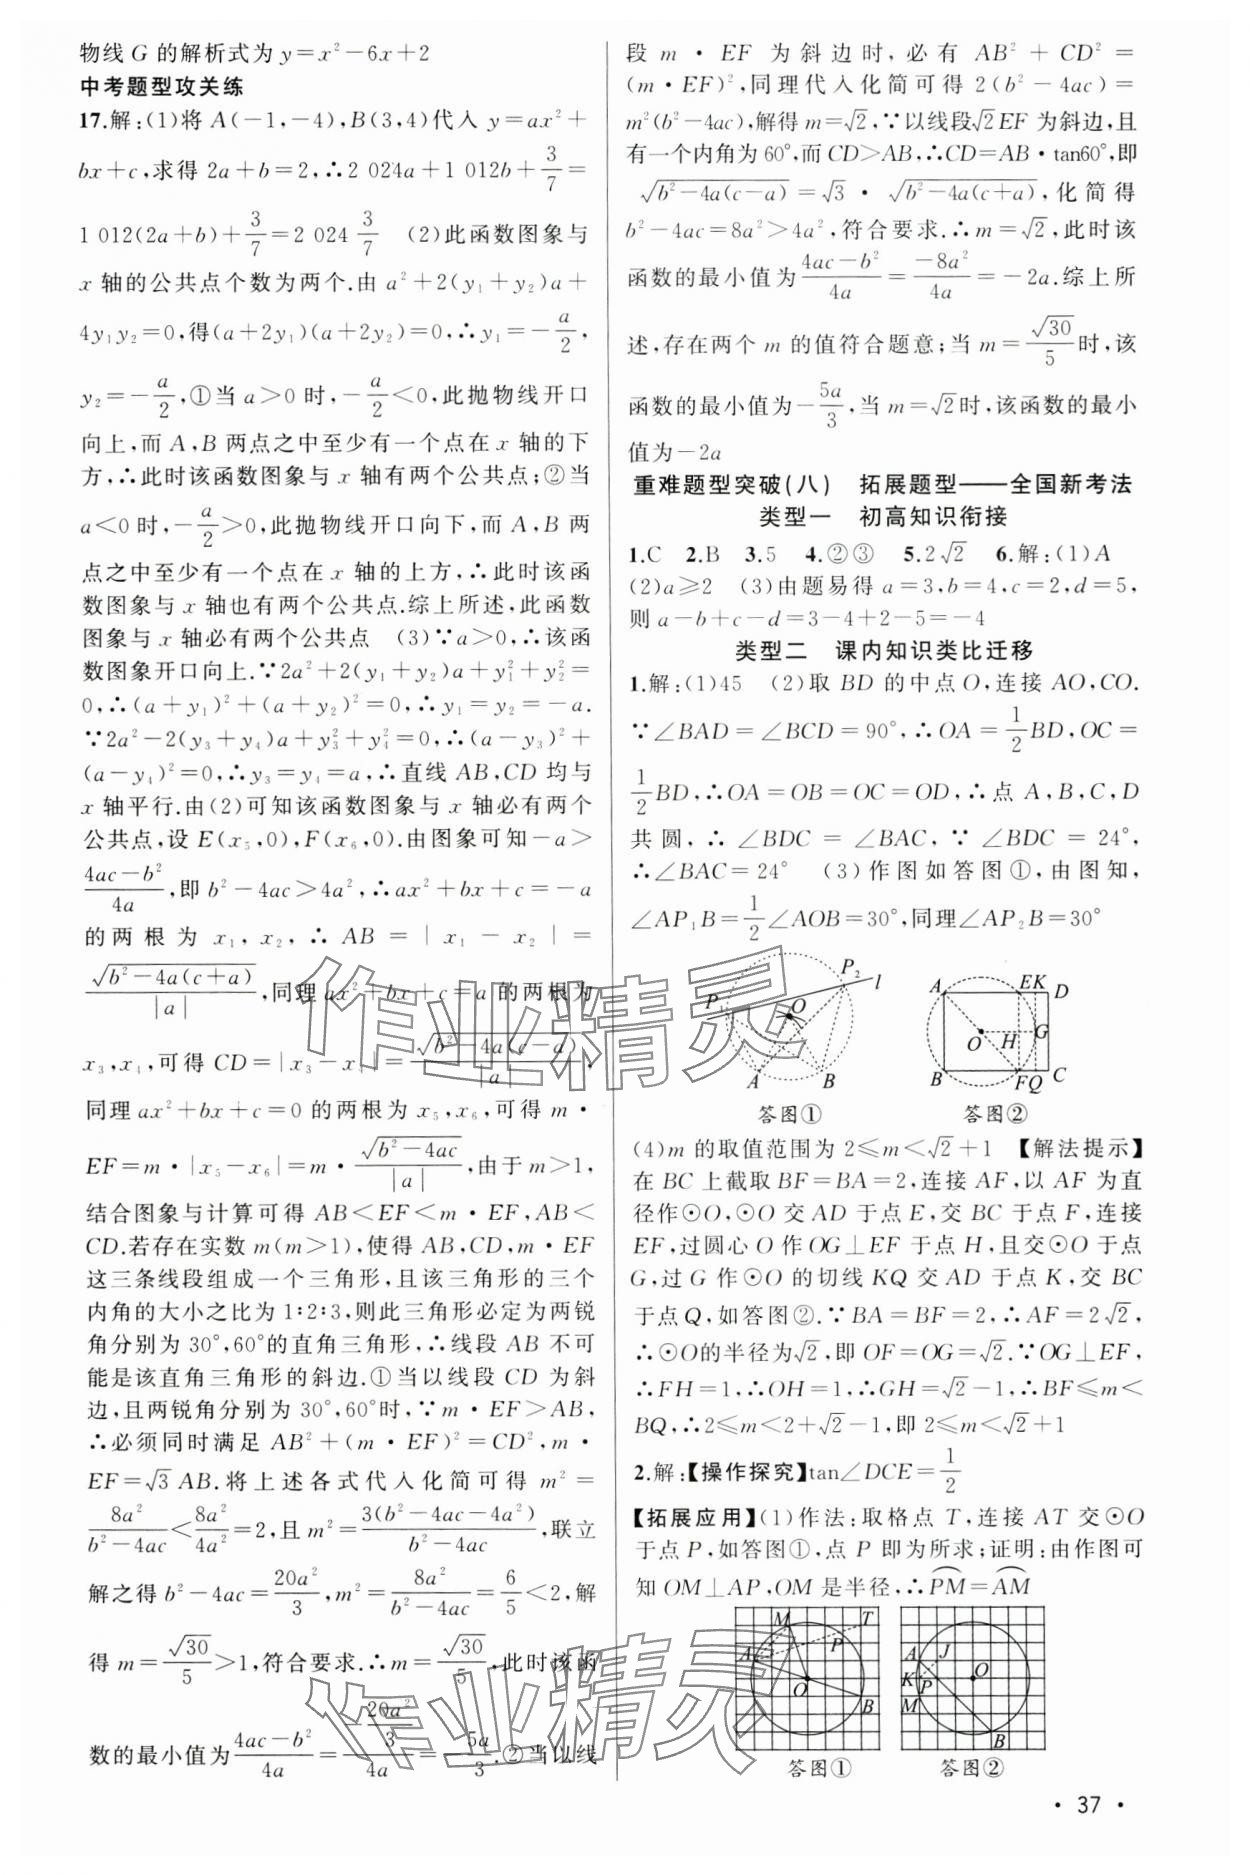 物线 G 的解析式为 y=x²-6x+2
中考题型攻关练
17.解:(1)将 A(-1,-4),B(3,4)代入 y=ax²+
bx+c,求得 2a+b=2,∴2 024a+1 012b+3/7=
1 012(2a+b)+3/7=2 024 3/7 (2)此函数图象与
x 轴的公共点个数为两个.由 a²+2(y₁+y₂)a+
4y₁y₂=0,得(a+2y₁)(a+2y₂)=0,∴y₁=-a/2,
y₂=-a/2,①当 a>0 时,-a/2<0,此抛物线开口
向上,而 A,B 两点之中至少有一个点在 x 轴的下
方,∴此时该函数图象与 x 轴有两个公共点;②当
a<0 时,-a/2>0,此抛物线开口向下,而 A,B 两
点之中至少有一个点在 x 轴的上方,∴此时该函
数图象与 x 轴也有两个公共点.综上所述,此函数
图象与 x 轴必有两个公共点 (3)∵a>0,∴该函
数图象开口向上.∵2a²+2(y₁+y₂)a+y₁²+y₂²=
0,∴(a+y₁)²+(a+y₂)²=0,∴y₁=y₂=-a.
∵2a²-2(y₃+y₄)a+y₃²+y₄²=0,∴(a-y₃)²+
(a-y₄)²=0,∴y₃=y₄=a,∴直线 AB,CD 均与
x 轴平行.由(2)可知该函数图象与 x 轴必有两个
公共点,设 E(x₅,0),F(x₆,0).由图象可知-a>
(4ac-b²)/4a,即 b²-4ac>4a²,∴ax²+bx+c=-a
的两根为 x₁,x₂,∴AB=|x₁-x₂|=
√(b²-4a(c+a))/|a|,同理 ax²+bx+c=a 的两根为
x₃,x₄,可得 CD=|x₃-x₄|=√(b²-4a(c-a))/|a|,
同理 ax²+bx+c=0 的两根为 x₅,x₆,可得 m·
EF=m·|x₅-x₆|=m·√(b²-4ac)/|a|,由于 m>1,
结合图象与计算可得 AB<EF<m·EF,AB<
CD.若存在实数 m(m>1),使得 AB,CD,m·EF
这三条线段组成一个三角形,且该三角形的三个
内角的大小之比为 1∶2∶3,则此三角形必定为两锐
角分别为 30°,60°的直角三角形,∴线段 AB 不可
能是该直角三角形的斜边.①当以线段 CD 为斜
边,且两锐角分别为 30°,60°时,∵m·EF>AB,
∴必须同时满足 AB²+(m·EF)²=CD²,m·
EF=√3 AB.将上述各式代入化简可得 m²=
8a²/(b²-4ac)<8a²/4a²=2,且 m²=3(b²-4ac-4a²)/(b²-4ac),联立
解之得 b²-4ac=20a²/3,m²=8a²/(b²-4ac)=6/5<2,解
得 m=√30/5>1,符合要求.∴m=√30/5,此时该函
数的最小值为(4ac-b²)/4a=(-20a²/3)/4a=-5a/3.②当以线
段 m·EF 为斜边时,必有 AB²+CD²=
(m·EF)²,同理代入化简可得 2(b²-4ac)=
m²(b²-4ac),解得 m=√2,∵以线段√2EF 为斜边,且
有一个内角为 60°,而 CD>AB,∴CD=AB·tan60°,即
√(b²-4a(c-a))=√3·√(b²-4a(c+a)),化简得
b²-4ac=8a²>4a²,符合要求.∴m=√2,此时该
函数的最小值为(4ac-b²)/4a=-8a²/4a=-2a.综上所
述,存在两个 m 的值符合题意;当 m=√30/5时,该
函数的最小值为-5a/3,当 m=√2时,该函数的最小
值为-2a
重难题型突破(八) 拓展题型——全国新考法
类型一 初高知识衔接
1.C 2.B 3.5 4.②③ 5.2√2 6.解:(1)A
(2)a≥2 (3)由题易得 a=3,b=4,c=2,d=5,
则 a-b+c-d=3-4+2-5=-4
类型二 课内知识类比迁移
1.解:(1)45 (2)取 BD 的中点 O,连接 AO,CO.
∵∠BAD=∠BCD=90°,∴OA=1/2BD,OC=
1/2BD,∴OA=OB=OC=OD,∴点 A,B,C,D
共圆,∴∠BDC=∠BAC,∵∠BDC=24°,
∴∠BAC=24° (3)作图如答图①,由图知,
∠AP₁B=1/2∠AOB=30°,同理∠AP₂B=30°
P₂ l P₁ O A B
答图①
A E K D O H G B F Q C
答图②
(4)m 的取值范围为 2≤m<√2+1 【解法提示】
在 BC 上截取 BF=BA=2,连接 AF,以 AF 为直
径作⊙O,⊙O 交 AD 于点 E,交 BC 于点 F,连接
EF,过圆心 O 作 OG⊥EF 于点 H,且交⊙O 于点
G,过 G 作⊙O 的切线 KQ 交 AD 于点 K,交 BC
于点 Q,如答图②.∵BA=BF=2,∴AF=2√2,
∴⊙O的半径为√2,即 OF=OG=√2.∵OG⊥EF,
∴FH=1,∴OH=1,∴GH=√2-1,∴BF≤m<
BQ,∴2≤m<2+√2-1,即 2≤m<√2+1
2.解:【操作探究】tan∠DCE=1/2
【拓展应用】(1)作法:取格点 T,连接 AT 交⊙O
于点 P,如答图①,点 P 即为所求;证明:由作图可
知 OM⊥AP,OM 是半径,∴P͡M=A͡M
M T A P O B
答图①
A J K P O M B
答图②
· 37 ·
作业精灵
作业精灵